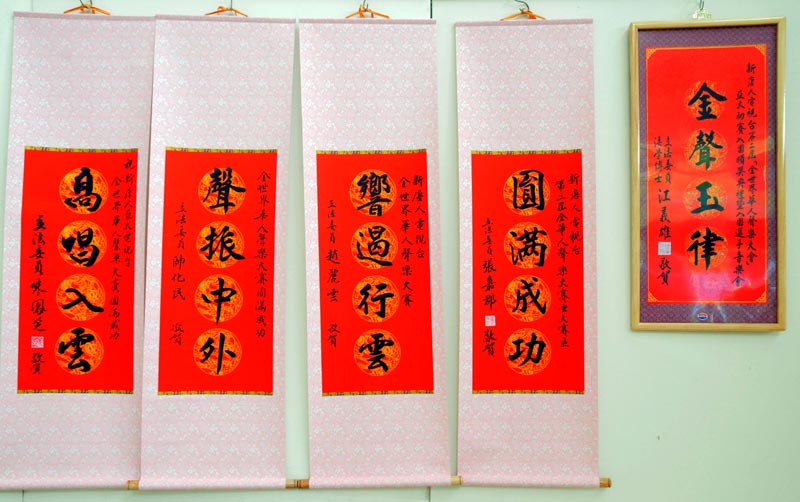 祝新唐人亞太電視台
全世界華人聲樂大賽圓滿成功
高唱入雲
立法委員 敬賀
全世界華人聲樂大賽圓滿成功
聲振中外
立法委員 帥化民 敬賀
新唐人電視台
全世界華人聲樂大賽
響遏行雲
立法委員 趙麗雲 敬賀
新唐人電視台
第二屆全華人聲樂大賽亞太賽區
圓滿成功
立法委員 張嘉郡 敬賀
新唐人電視台第二屆「全世界華人聲樂大會
亞太初賽入圍頒獎典禮暨入圍選手音樂會
金聲玉律
立法委員
法學博士 江義雄 敬賀